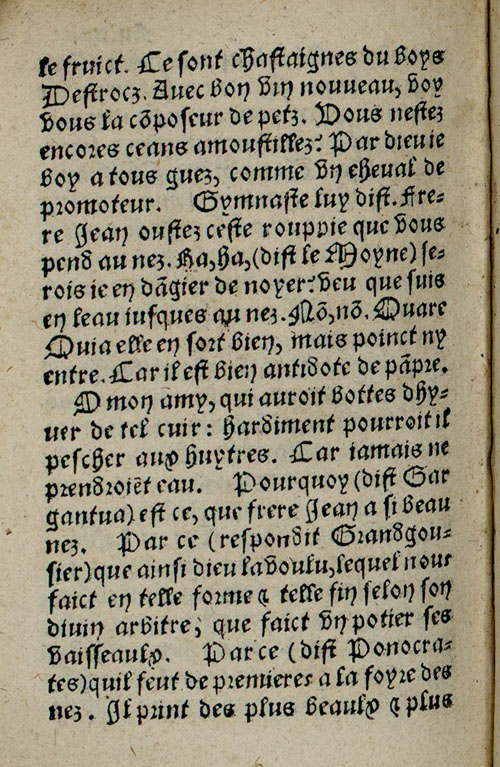 le fruict. Ce sont chastaignes du boys
Destrocz. Avec bon vin nouveau, voy
vous la cõposeur de petz. Vous nestez
encores ceans amoustillez? Par dieu ie
boy a tous guez, comme vn eheual de
promoteur. Gymnaste luy dist. Fre-
re Jean oustez ceste rouppie que vous
pend au nez. Ha, ha, (dist le Moyne) se-
rois ie en dãgier de noyer? veu que suis
en leau iusques au nez. Nõ, nõ. Quare
Quia elle en sort bien, mais poinct ny
entre. Car il est bien antidote de pãpre.
O mon amy, qui auroit bottes dhy-
uer de tel cuir: hardiment pourroit il
pescher aux huytres. Car iamais ne
prendroiẽt eau. Pourquoy (dist Gar
gantua) est ce, que frere Jean a si beau
nez. Par ce (respondit Grandgou-
sier) que ainsi dieu la voulu, lequel nous
faict en telle forme & telle fin selon son
diuin arbitre, que faict vn potier ses
vaisseaulx. Par ce (dist Ponocra-
tes) quil feut de premieres a la foyre des
nez. Il print des plus beaulx & plus